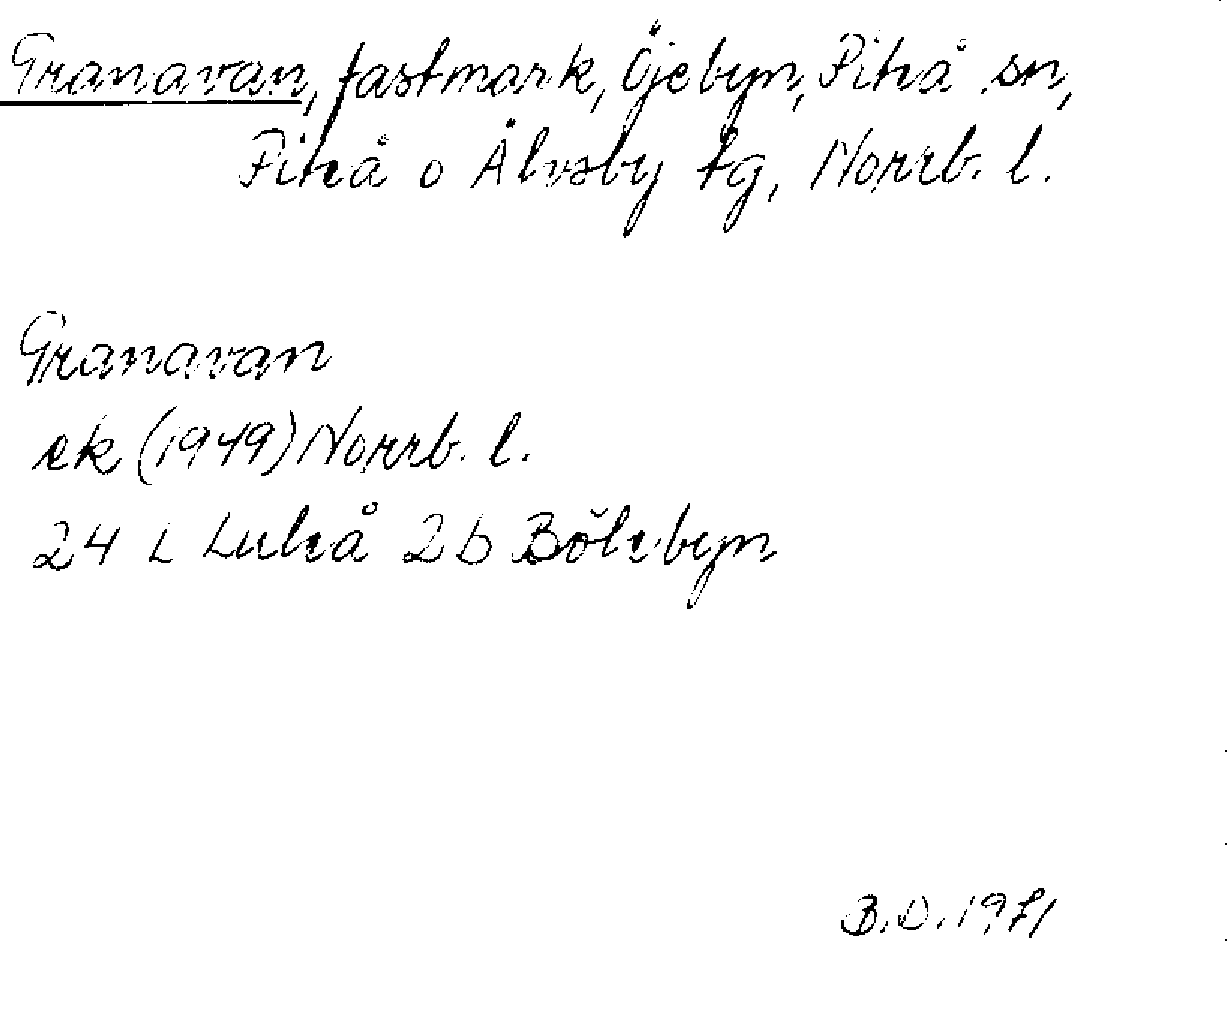 Granavan, fastmark, Öjebyn, Piteå sn,
Piteå o Älvsby tg, Norrb. l.
Granavan
ek (1949) Norrb. l.
24 L Luleå 2b Bölebyn
B.D. 1971